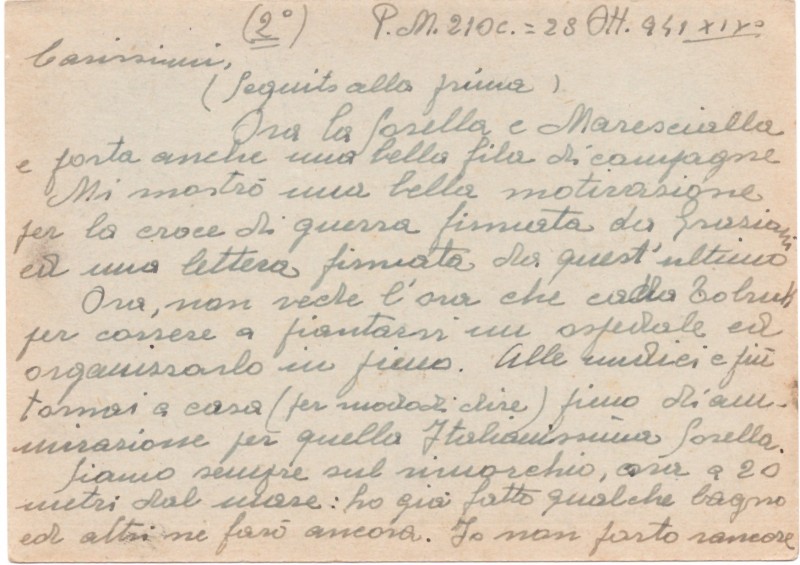 (2°) P.M. 210 C. = 28 Ott. 941 XIX°
Carissimi,
(Seguito alla prima)
Ora la Sorella e Marescialla
e porta anche una bella fila di campagne
Mi mostrò una bella motivazione
per la croce di guerra firmata da Graziani
ed una lettera firmata da quest'ultimo
Ora, non vede l'ora che cada Tobruk
per correre a piantarvi un ospedale ed
organizzarlo in pieno. Alle undici e più
tornai a casa (per modo di dire) pieno di am-
mirazione per quella Italianissima Sorella.
Siamo sempre sul rimorchio, ora a 20
metri dal mare: ho già fatto qualche bagno
ed altri ne farò ancora. Io non porto rancore